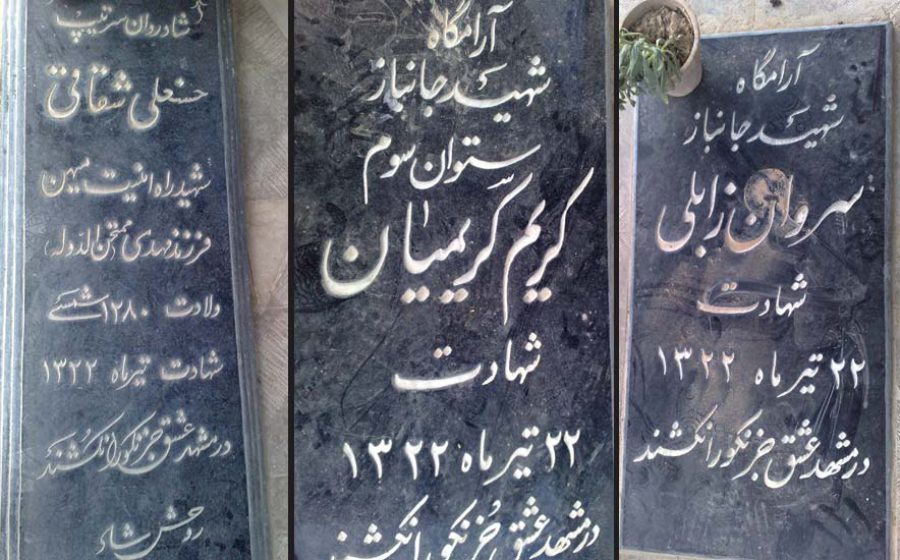 شادروان سرتیپ
حسنعلی شقاقی
شهید راه امنیت میهن
فرزند مهدی ممتحن الدوله
ولادت ۱۲۸۰ شمسی
شهادت تیرماه ۱۳۲۲
در مشهد عشق جز نکو را نکشند
روحش شاد
آرامگاه
شهید جانباز
ستوان سوم
کریم کریمیان
شهادت
۲۲ تیر ماه ۱۳۲۲
در مشهد عشق جُز نکو را نکشند
آرامگاه
شهید جانباز
سروان زابلی
شهادت
۲۲ تیر ماه ۱۳۲۲
در مشهد عشق جز نکو را نکشند